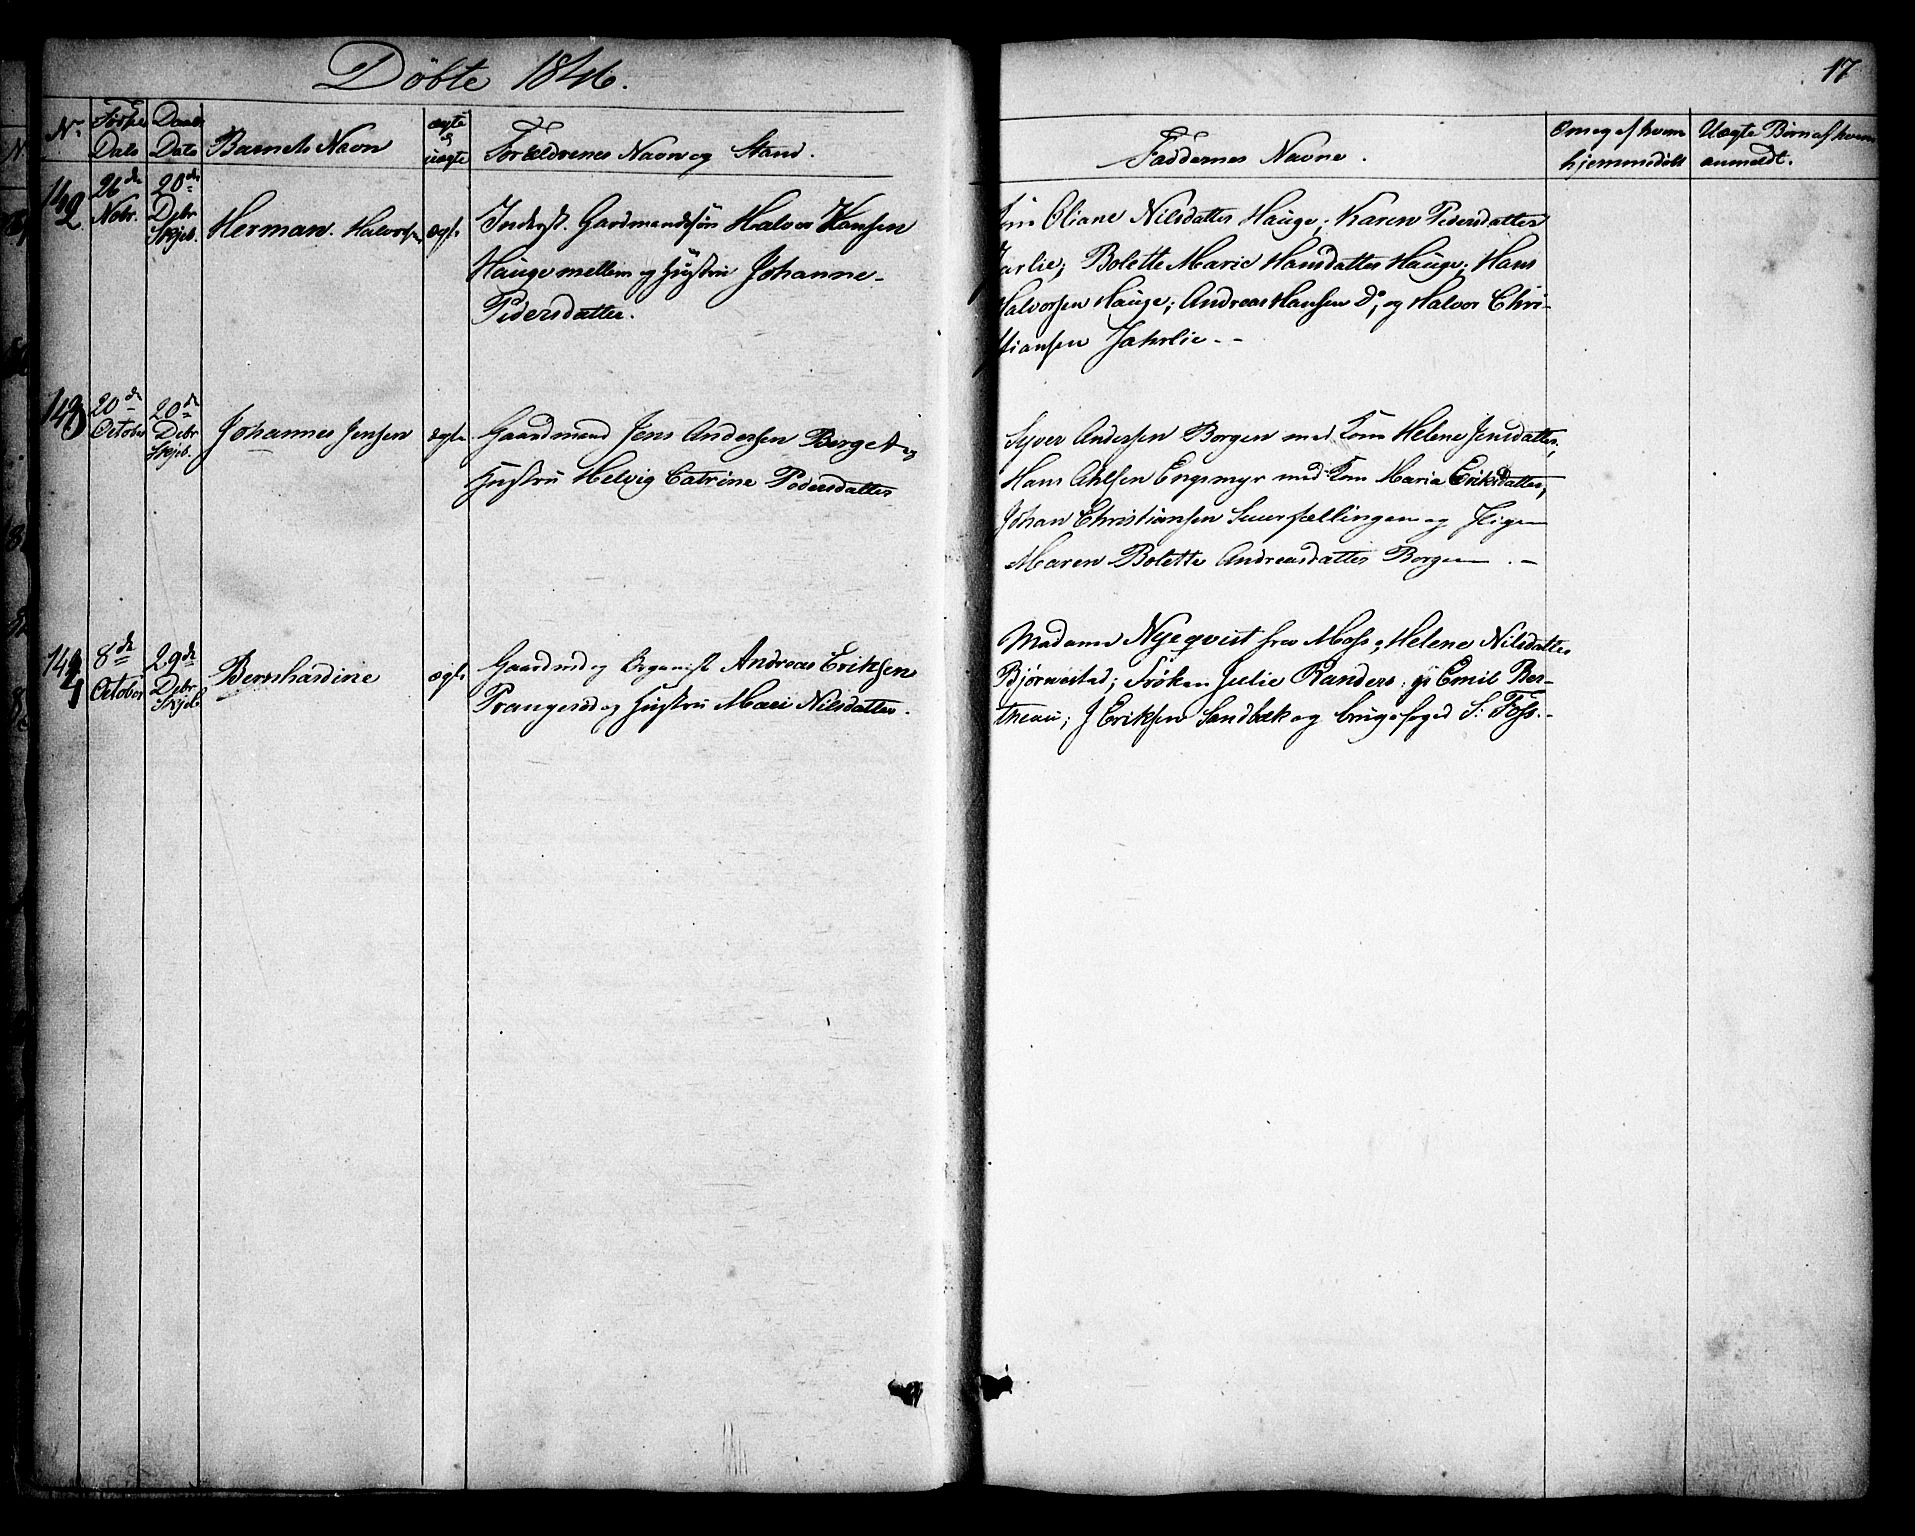 Döbte 1846.
17
No Födsels Dato Daabs Dato Barnets Navn ægte & uægte Forældrenes Navn og Stand.
Faddernes Navne.
Om og af hvem hjemmedöbt
Uægte Börn af hvem anmeldt.
142 26de Nobr. 20de Debr Skjeb. Herman. Halvorsen ægte
Inderst. Gardmandssön Halvor Hansen
Hauge mellem og Hustru Johanne
Pedersdatter.
Oliane Nilsdatter Hauge; Karen Pedersdatter
Jarlie; Bolette Marie Hansdatter Hauge; Hans
Halvorsen Hauge; Andreas Hansen Do; og Halvor Chri-
stiansen Jahrlie. -
143 20de October 20de Debr Skjeb. Johannes Jensen ægte
Gaardmand Jens Andersen Borge og
Hustru Helvig Catrine Pedersdatter
Syver Andersen Borgen med Kone Helene Jensdatter,
Hans Ahlsen Engsmyr med Kone Maria Eriksdatter,
Johan Christiansen og Pigen
Maren Bolette Andreasdatter Borgen. -
144 8de October 29de Debr Skjeb Bernhardine ægte
Gaardmd og Organist Andreas Eriksen
Prangerød og Hustru Mari Nilsdatter.
Madame Nyeqvist fra Moss, Helene Nilsdatter
Bjørnestad; Frøken Julie Randers; Emil Ber-
theau; J Eriksen Sandbæk og brugsfoged S: Foss.-